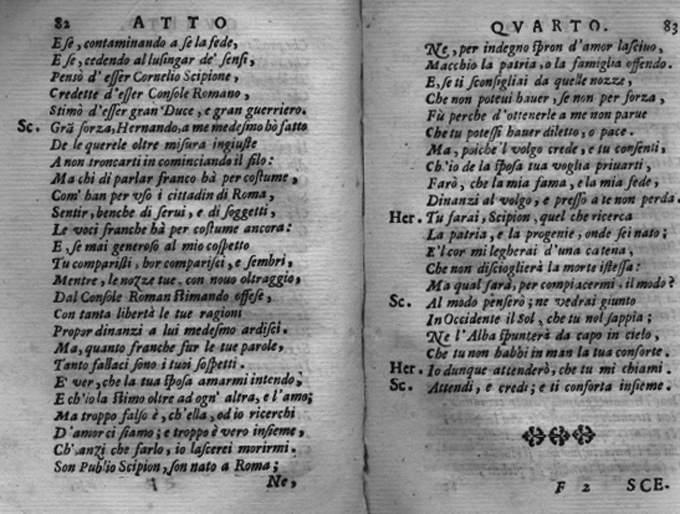 82 ATTO
E se, contaminando a se la fede,
E se, cedendo al lusingar de' sensi,
Pensò d'esser Cornelio Scipione,
Credette d'esser Console Romano,
Stimò d'esser gran Duce, e gran guerriero.
Sc. Grā forza, Hernando, a me medesmo hò fatto
De le querele oltre misura ingiuste
A non troncarti in cominciando il filo:
Ma chi di parlar franco hà per costume,
Com' han per vso i cittadin di Roma,
Sentir, benche di serui, e di soggetti,
Le voci franche hà per costume ancora:
E, se mai generoso al mio cospetto
Tu comparisti, hor comparisci, e sembri,
Mentre, le nozze tue, con nouo oltraggio,
Dal Console Roman stimando offese,
Con tanta libertà le tue ragioni
Propor dinanzi a lui medesmo ardisci.
Ma, quanto franche fur le tue parole,
Tanto fallaci sono i tuoi sospetti.
E' ver, che la tua sposa amarmi intendo,
E ch'io la stimo oltre ad ogn' altra, e l'amo;
Ma troppo falso è, ch'ella, od io ricerchi
D'amor ci siamo; e troppo è vero insieme,
Ch'anzi che farlo, io lascerei morirmi.
Son Publio Scipion, son nato a Roma;
Ne,
QVARTO. 83
Ne, per indegno spron d'amor lasciuo,
Macchio la patria, o la famiglia offendo.
E, se ti sconsigliai da quelle nozze,
Che non poteui hauer, se non per forza,
Fù perche d'ottenerle a me non parue
Che tu potessi hauer diletto, o pace.
Ma, poiche'l volgo crede, e tu consenti,
Ch'io de la sposa tua voglia priuarti,
Farò, che la mia fama, e la mia fede,
Dinanzi al volgo, e presso a te non perda.
Her. Tu farai, Scipion, quel che ricerca
La patria, e la progenie, onde sei nato;
E'l cor mi legherai d'una catena,
Che non discioglierà la morte istessa:
Ma qual farà, per compiacermi, il modo?
Sc. Al modo penserò; ne vedrai giunto
In Occidente il Sol, che tu nol sappia;
Ne l'Alba spunterà da capo in cielo,
Che tu non habbi in man la tua consorte.
Her. Io dunque attenderò, che tu mi chiami.
Sc. Attendi, e credi; e ti conforta insieme.
F 2 SCE.